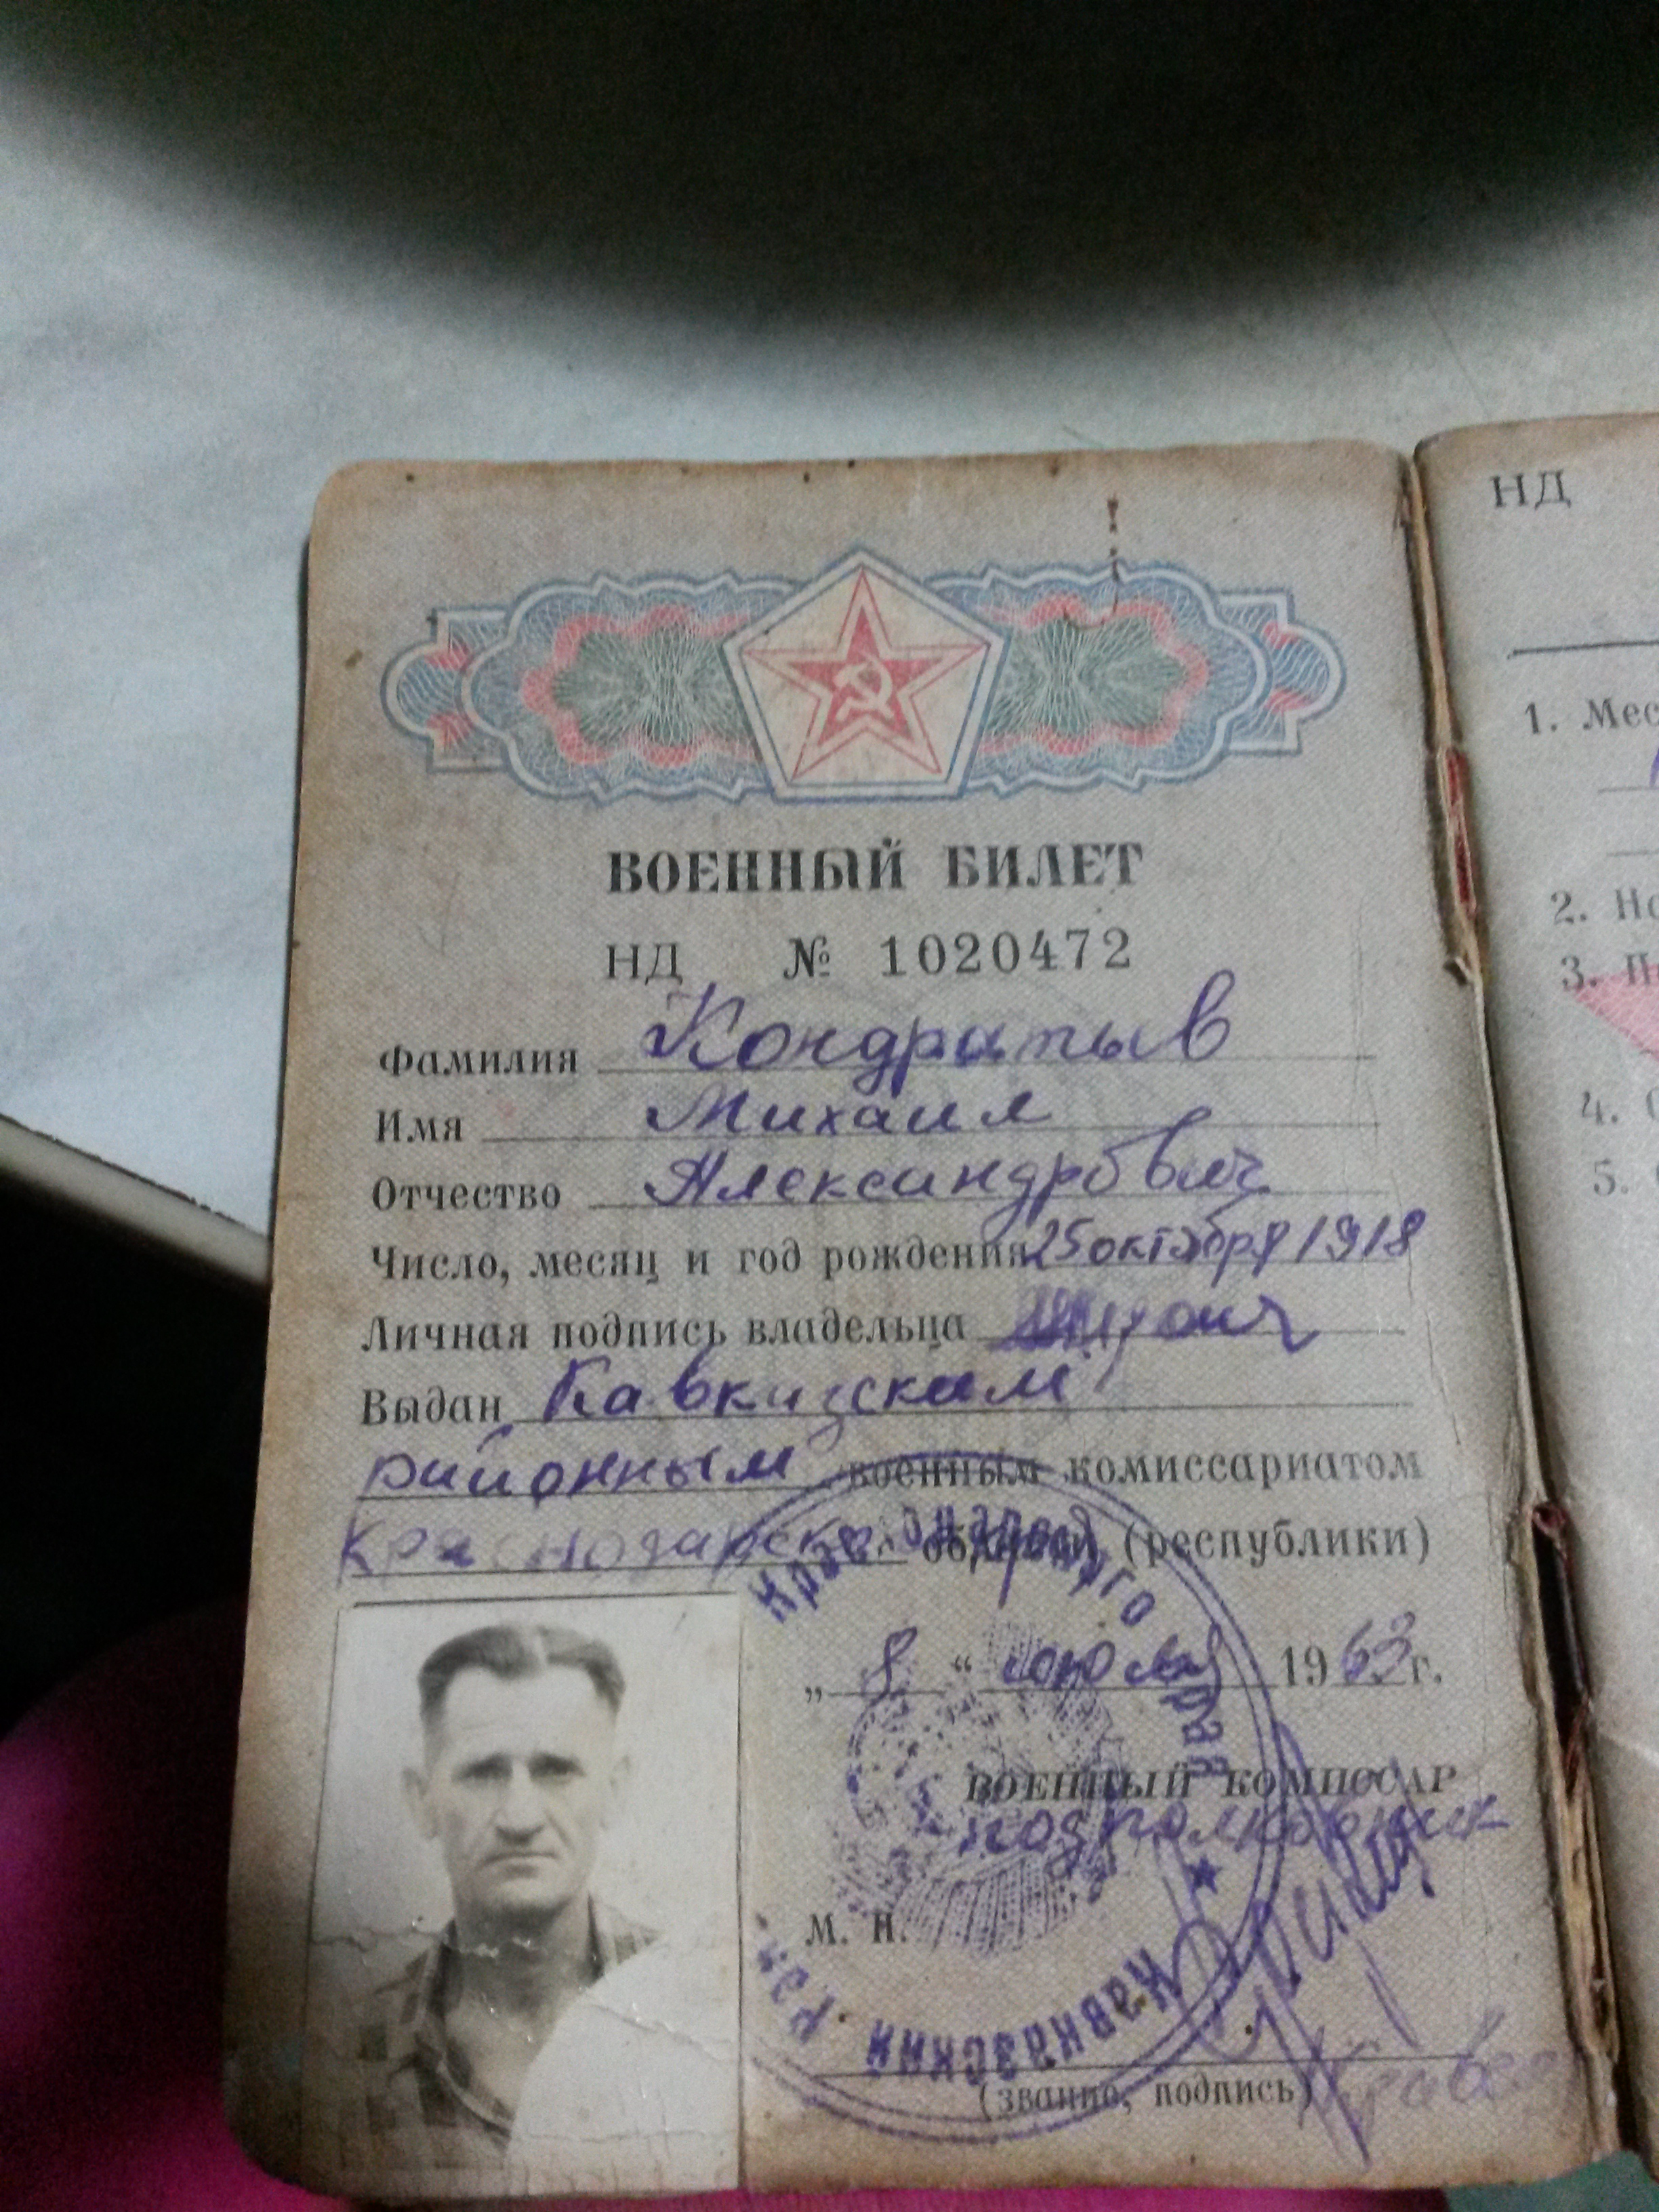 ВОЕННЫЙ БИЛЕТ
НД № 1020472
Фамилия Кондратьев
Имя Михаил
Отчество Александрович
Число, месяц и год рождения 25 октября 1918
Личная подпись владельца
Выдан Кавказским
районным военным комиссариатом
Краснодарского области (республики)
„ 8 “ июля 1963 г.
ВОЕННЫЙ КОМИССАР
подполковник
М. П.
(звание, подпись)
Краснодарского края
Кавказский рай.
НД
1.
2.
3.
4.
5.